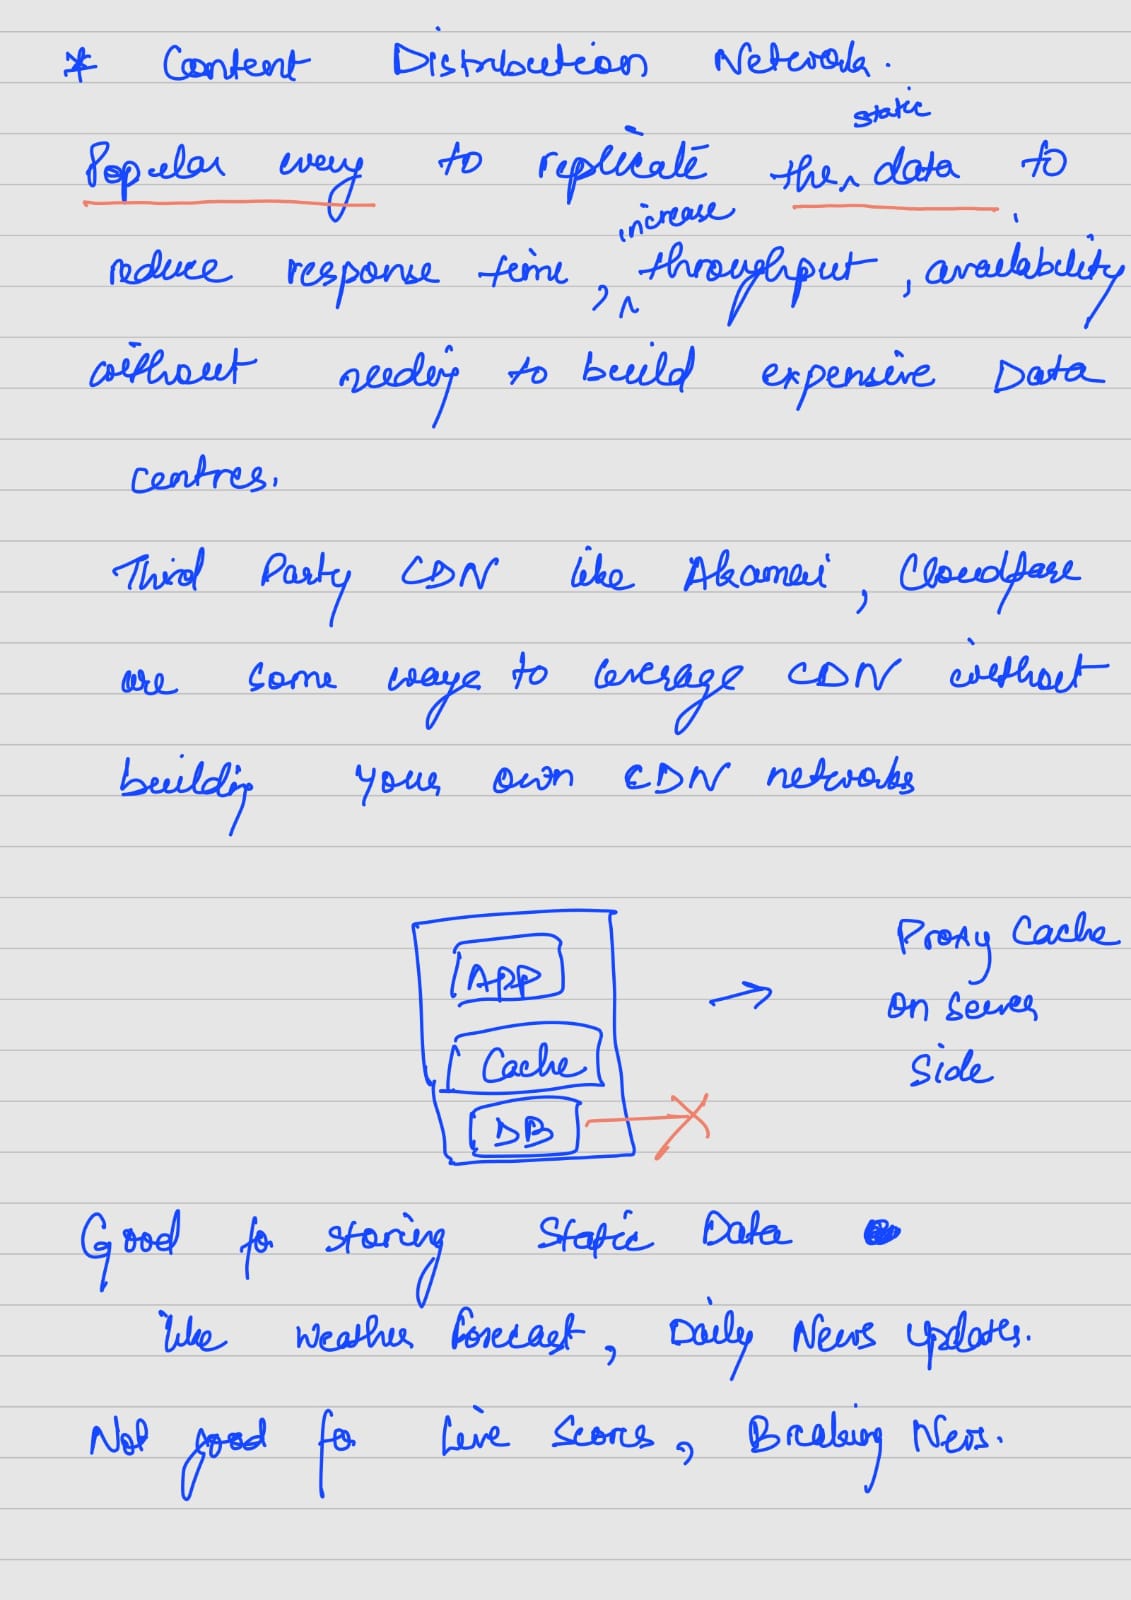 * Content Distribution Network.
static
Popular way to replicate the ^ data to
increase
reduce response time, ^ throughput, availability
without needing to build expensive Data
centres.
Third Party CDN like Akamai, Cloudfare
are some ways to leverage CDN without
building your own CDN networks
APP
Cache
DB
→
Proxy Cache
on server
side
Good for storing Static Data
like weather forecast, Daily News updates.
Not good for Live Scores, Breaking News.